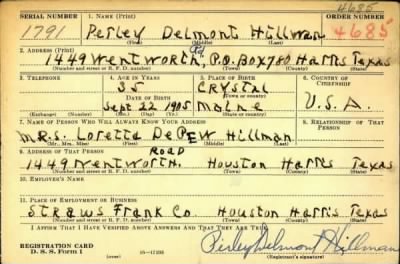 4685
SERIAL NUMBER 1. NAME (Print) ORDER NUMBER
1791 Perley Delmont Hillman 4685
(First) (Middle) (Last)
2. ADDRESS (Print)
1449 Wentworth, Rd P.O. Box 780 Harris Texas
(Number and street or R. F. D. number) (Town) (County) (State)
3. TELEPHONE 4. AGE IN YEARS 5. PLACE OF BIRTH 6. COUNTRY OF CITIZENSHIP
35 Crystal
DATE OF BIRTH (Town or county)
Sept 22 1905 Maine U.S.A.
(Exchange) (Number) (Mo.) (Day) (Yr.) (State or country)
7. NAME OF PERSON WHO WILL ALWAYS KNOW YOUR ADDRESS 8. RELATIONSHIP OF THAT PERSON
Mrs. Loretta DePew Hillman
(Mr., Mrs., Miss) (First) (Middle) (Last)
9. ADDRESS OF THAT PERSON ROAD
1449 Wentworth. Houston Harris Texas
(Number and street or R. F. D. number) (Town) (County) (State)
10. EMPLOYER'S NAME
11. PLACE OF EMPLOYMENT OR BUSINESS
Straws Frank Co. Houston Harris Texas
(Number and street or R. F. D. number) (Town) (County) (State)
I AFFIRM THAT I HAVE VERIFIED ABOVE ANSWERS AND THAT THEY ARE TRUE.
REGISTRATION CARD
D. S. S. Form 1 (over) Perley Delmont Hillman
(Registrant's signature)